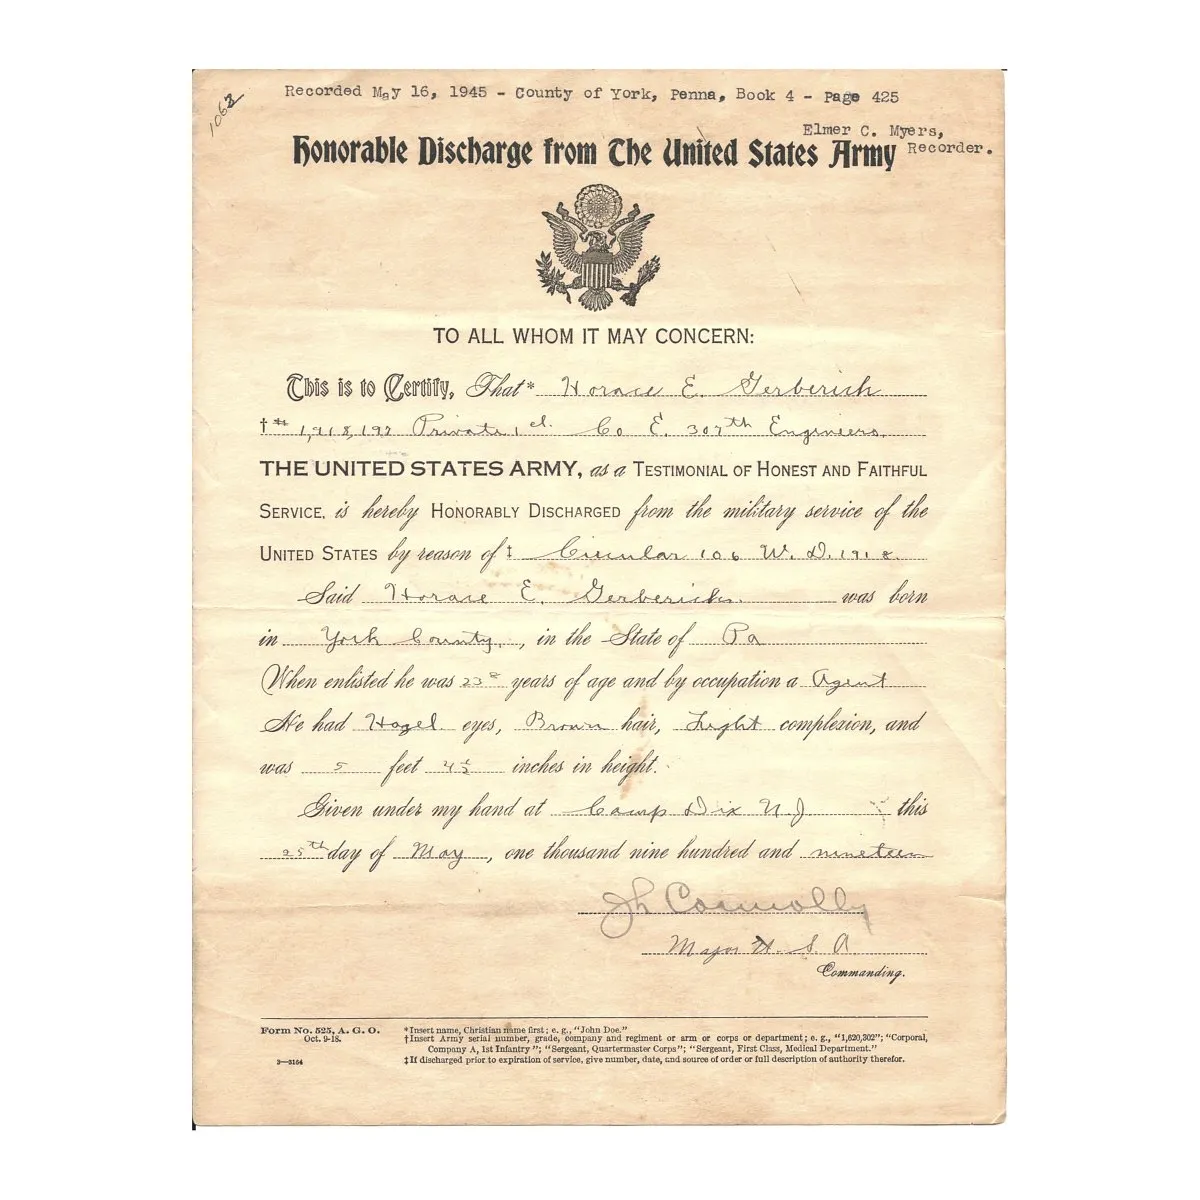 1062
Recorded May 16, 1945 - County of York, Penna, Book 4 - Page 425
Elmer C. Myers,
Recorder.
Honorable Discharge from The United States Army
TO ALL WHOM IT MAY CONCERN:
This is to Certify, That* Horace E. Gerberich
†# 1,918,192 Private 1 cl. Co E. 307th Engineers.
THE UNITED STATES ARMY, as a TESTIMONIAL OF HONEST AND FAITHFUL
SERVICE, is hereby HONORABLY DISCHARGED from the military service of the
UNITED STATES by reason of‡ Circular 106 W. D. 1918.
Said Horace E. Gerberich was born
in York County, in the State of Pa
When enlisted he was years of age and by occupation a Agent
He had Hazel eyes, Brown hair, Light complexion, and
was 5 feet inches in height.
Given under my hand at Camp Dix N J this
25th day of May, one thousand nine hundred and nineteen
Connolly
Major U. S. A
Commanding.
Form No. 525, A. G. O.
Oct. 9-18.
3—3164
*Insert name, Christian name first; e. g., "John Doe."
†Insert Army serial number, grade, company and regiment or arm or corps or department; e. g., "1,620,302"; "Corporal,
Company A, 1st Infantry"; "Sergeant, Quartermaster Corps"; "Sergeant, First Class, Medical Department."
‡If discharged prior to expiration of service, give number, date, and source of order or full description of authority therefor.